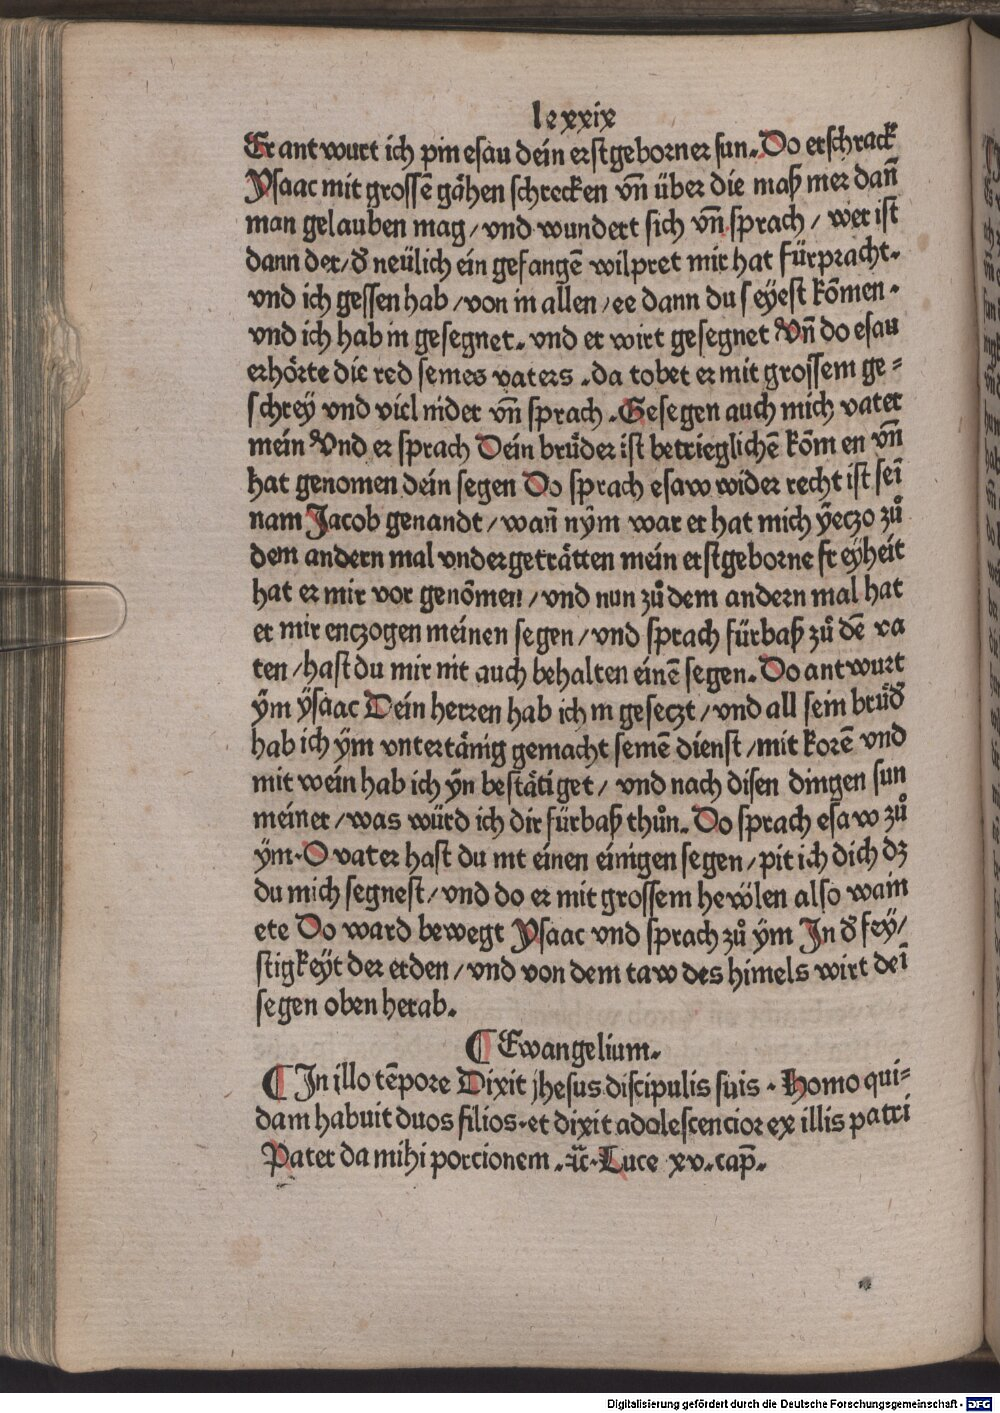 lexxix
Er antwurt ich pin esau dein erstgeborner sun. Do erschrack
Ysaac mit grossē gähen schrecken vn̄ über die maß mer dan̄
man gelauben mag / vnd wundert sich vn̄ sprach / wer ist
dann der / d̕ neülich ein gefangē wilpret mir hat fürpracht.
vnd ich gessen hab / von in allen / ee dann du seÿest kōmen.
vnd ich hab in gesegnet. vnd er wirt gesegnet Vn̄ do esau
erhörte die red seines vaters . da tobet er mit grossem ge=
schreÿ vnd viel nider vn̄ sprach . Gesegen auch mich vater
mein Vnd er sprach Dein brůder ist betrieglichē kōmen vn̄
hat genomen dein segen Do sprach esaw wider recht ist seī
nam Jacob genandt / wan̄ nym war er hat mich ÿeczo zů
dem andern mal vndergeträtten mein erstgeborne freÿheit
hat er mir vor genōmen / vnd nun zů dem andern mal hat
er mir enczogen meinen segen / vnd sprach fürbaß zů dē va
ten / hast du mir nit auch behalten einē segen. Do antwurt
ÿm ÿsaac Dein herren hab ich in geseczt / vnd all sein brůd̕
hab ich ÿm vntertänig gemacht seinē dienst / mit korē vnd
mit wein hab ich ÿn bestätiget / vnd nach disen dingen sun
meiner / was würd ich dir fürbaß thůn. Do sprach esaw zů
ÿm. O vater hast du nit einen einigen segen / pit ich dich dz
du mich segnest / vnd do er mit grossem hewlen also wain
ete Do ward bewegt Ysaac vnd sprach zů ÿm In d̕ fey/
stigkeÿt der erden / vnd von dem taw des himels wirt deī
segen oben herab.
¶ Ewangelium.
¶ In illo tēpore Dixit jhesus discipulis suis . Homo qui=
dam habuit duos filios. et dixit adolescencior ex illis patri
Pater da mihi porcionem . ⁊c̄. Luce xv. cap̄.
Digitalisierung gefördert durch die Deutsche Forschungsgemeinschaft - DFG